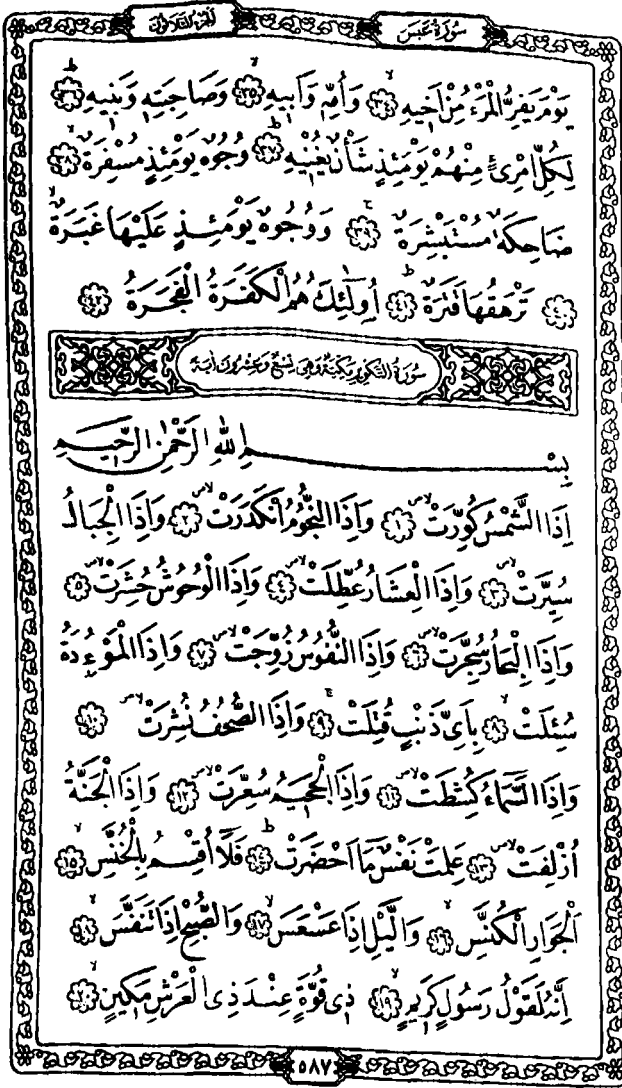 سُورَةُ عَبَسَ
اَلْجُزْءُ الثَّلَاثُونَ
يَوْمَ يَفِرُّ الْمَرْءُ مِنْ اَخ۪يهِۙ ﴿٣٤﴾ وَاُمِّه۪ وَاَب۪يهِۙ ﴿٣٥﴾ وَصَاحِبَتِه۪ وَبَن۪يهِۜ ﴿٣٦﴾
لِكُلِّ امْرِئٍ مِنْهُمْ يَوْمَئِذٍ شَأْنٌ يُغْن۪يهِۜ ﴿٣٧﴾ وُجُوهٌ يَوْمَئِذٍ مُسْفِرَةٌۙ ﴿٣٨﴾
ضَاحِكَةٌ مُسْتَبْشِرَةٌۚ ﴿٣٩﴾ وَوُجُوهٌ يَوْمَئِذٍ عَلَيْهَا غَبَرَةٌۙ
﴿٤٠﴾ تَرْهَقُهَا قَتَرَةٌۜ ﴿٤١﴾ اُو۬لٰٓئِكَ هُمُ الْكَفَرَةُ الْفَجَرَةُ ﴿٤٢﴾
سُورَةُ التَّكْوِيرِ مَكِّيَّةٌ وَهِيَ تِسْعٌ وَعِشْرُونَ اٰيَةً
بِسْمِ اللّٰهِ الرَّحْمٰنِ الرَّح۪يمِ
اِذَا الشَّمْسُ كُوِّرَتْۙۖ ﴿١﴾ وَاِذَا النُّجُومُ انْكَدَرَتْۙۖ ﴿٢﴾ وَاِذَا الْجِبَالُ
سُيِّرَتْۙۖ ﴿٣﴾ وَاِذَا الْعِشَارُ عُطِّلَتْۙۖ ﴿٤﴾ وَاِذَا الْوُحُوشُ حُشِرَتْۙۖ ﴿٥﴾
وَاِذَا الْبِحَارُ سُجِّرَتْۙۖ ﴿٦﴾ وَاِذَا النُّفُوسُ زُوِّجَتْۙۖ ﴿٧﴾ وَاِذَا الْمَوْءُ۫دَةُ
سُئِلَتْۙ ﴿٨﴾ بِاَيِّ ذَنْبٍ قُتِلَتْۚ ﴿٩﴾ وَاِذَا الصُّحُفُ نُشِرَتْۙۖ ﴿١٠﴾
وَاِذَا السَّمَٓاءُ كُشِطَتْۙۖ ﴿١١﴾ وَاِذَا الْجَح۪يمُ سُعِّرَتْۙۖ ﴿١٢﴾ وَاِذَا الْجَنَّةُ
اُزْلِفَتْۙۖ ﴿١٣﴾ عَلِمَتْ نَفْسٌ مَٓا اَحْضَرَتْۜ ﴿١٤﴾ فَلَٓا اُقْسِمُ بِالْخُنَّسِۙ ﴿١٥﴾
اَلْجَوَارِ الْكُنَّسِۙ ﴿١٦﴾ وَالَّيْلِ اِذَا عَسْعَسَۙ ﴿١٧﴾ وَالصُّبْحِ اِذَا تَنَفَّسَۙ ﴿١٨﴾
اِنَّهُ لَقَوْلُ رَسُولٍ كَر۪يمٍۙ ﴿١٩﴾ ذ۪ي قُوَّةٍ عِنْدَ ذِي الْعَرْشِ مَك۪ينٍۙ ﴿٢٠﴾
٥٨٧